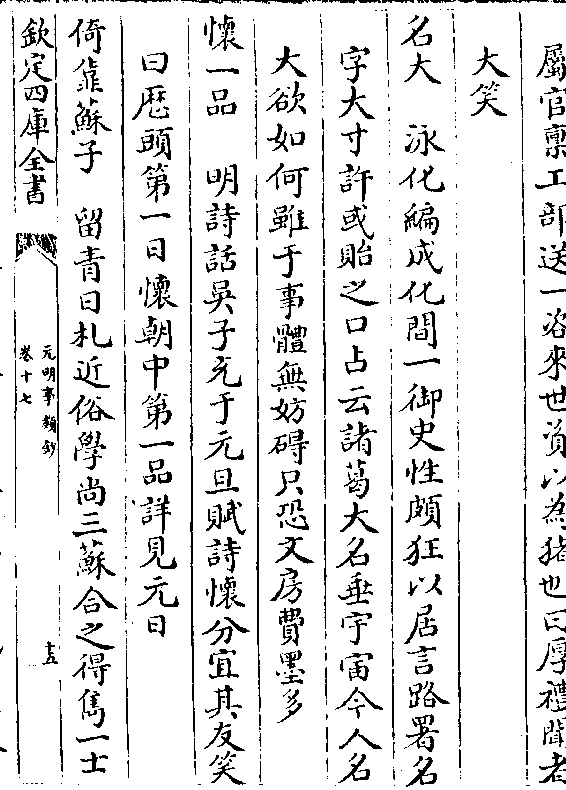 屬官禀工部送一姿來世資以為猪也曰厚禮聞者
大笑
名大　泳化編成化間一御史性頗狂以居言路署名
字大寸許或貽之口占云諸葛大名垂宇宙今人名
大欲如何雖于事體無妨碍只恐文房費墨多
懷一品　明詩話吳子充于元旦賦詩懷分宜其友笑
曰歴頭第一日懷朝中第一品詳見元日
倚靠蘇子　留青日札近俗學尚三蘇合之得雋一士
欽定四庫全書
元明事類鈔
卷十七
十五